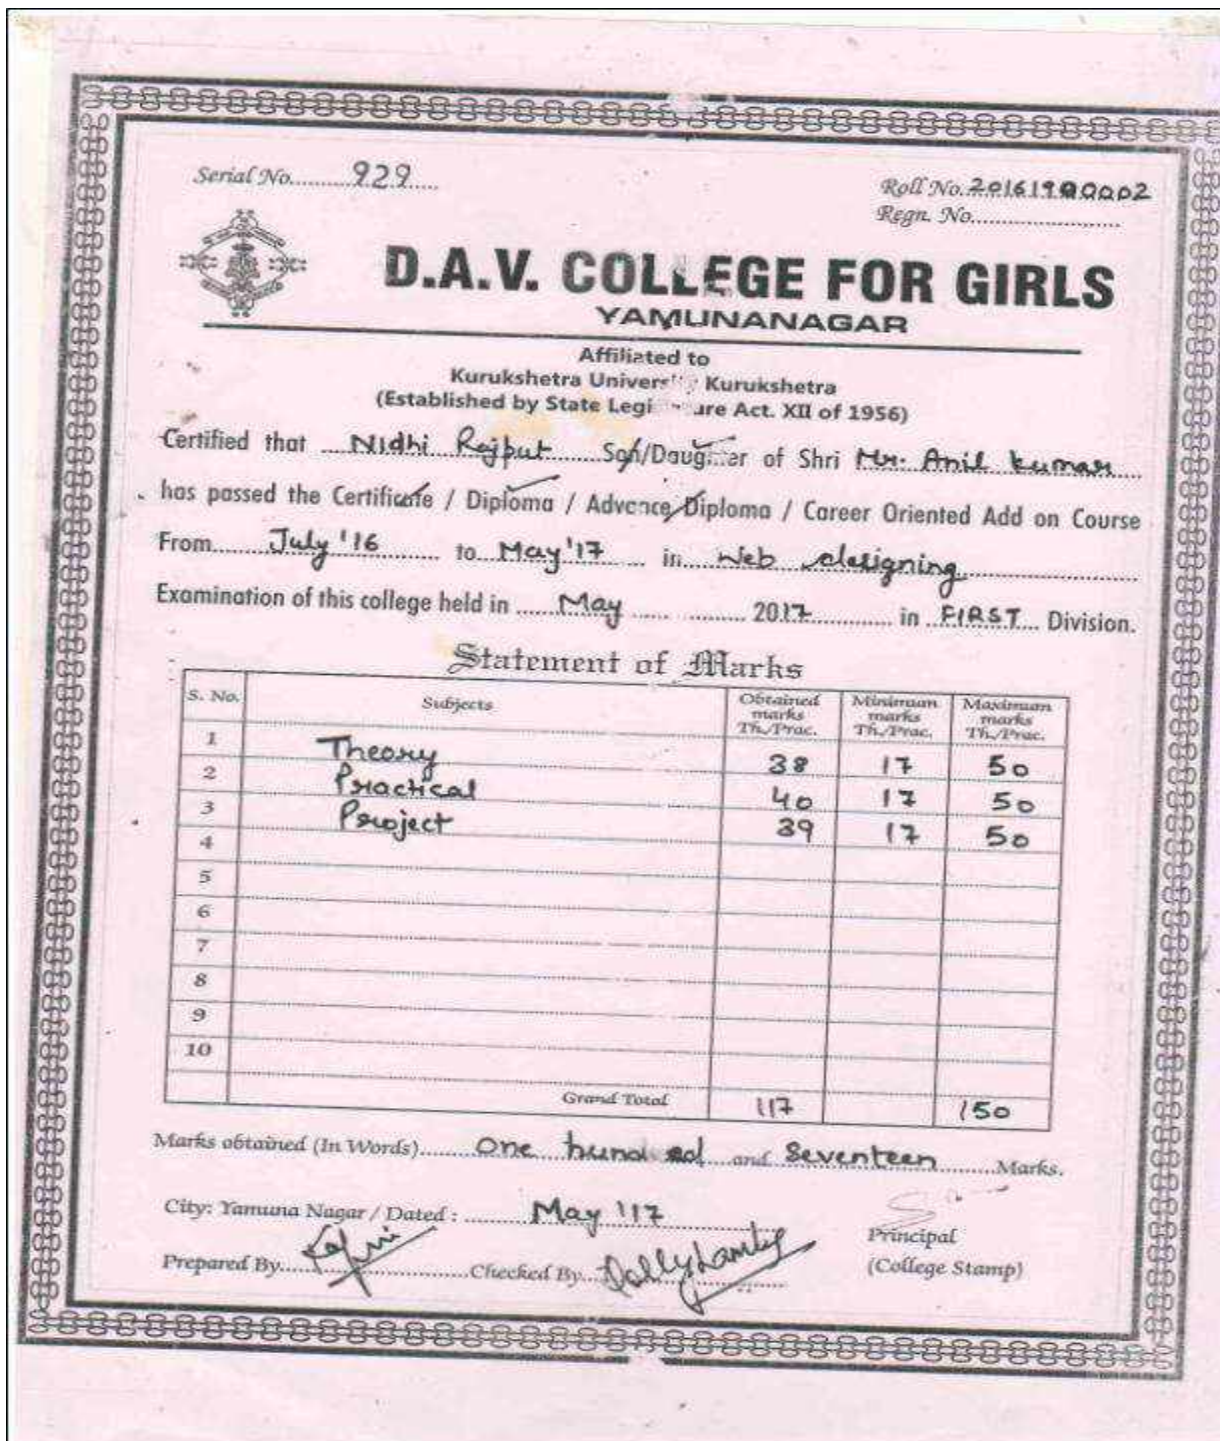 Serial No. 929
Roll No. 20161900002
Regn. No.
D.A.V. COLLEGE FOR GIRLS
YAMUNANAGAR
Affiliated to
Kurukshetra University Kurukshetra
(Established by State Legislature Act. XII of 1956)
Certified that Nidhi Rajput Son/Daughter of Shri Mr. Anil kumar
has passed the Certificate / Diploma / Advance Diploma / Career Oriented Add on Course
From July '16 to May '17 in Web designing
Examination of this college held in May 2017 in FIRST Division.
Statement of Marks
S. No. Subjects Obtained marks Th./Prac. Minimum marks Th./Prac. Maximum marks Th./Prac.
1 Theory 38 17 50
2 Practical 40 17 50
3 Project 39 17 50
4
5
6
7
8
9
10
Grand Total 117 150
Marks obtained (In Words) One hundred and Seventeen Marks.
City: Yamuna Nagar / Dated : May '17
Principal
Prepared By Checked By (College Stamp)